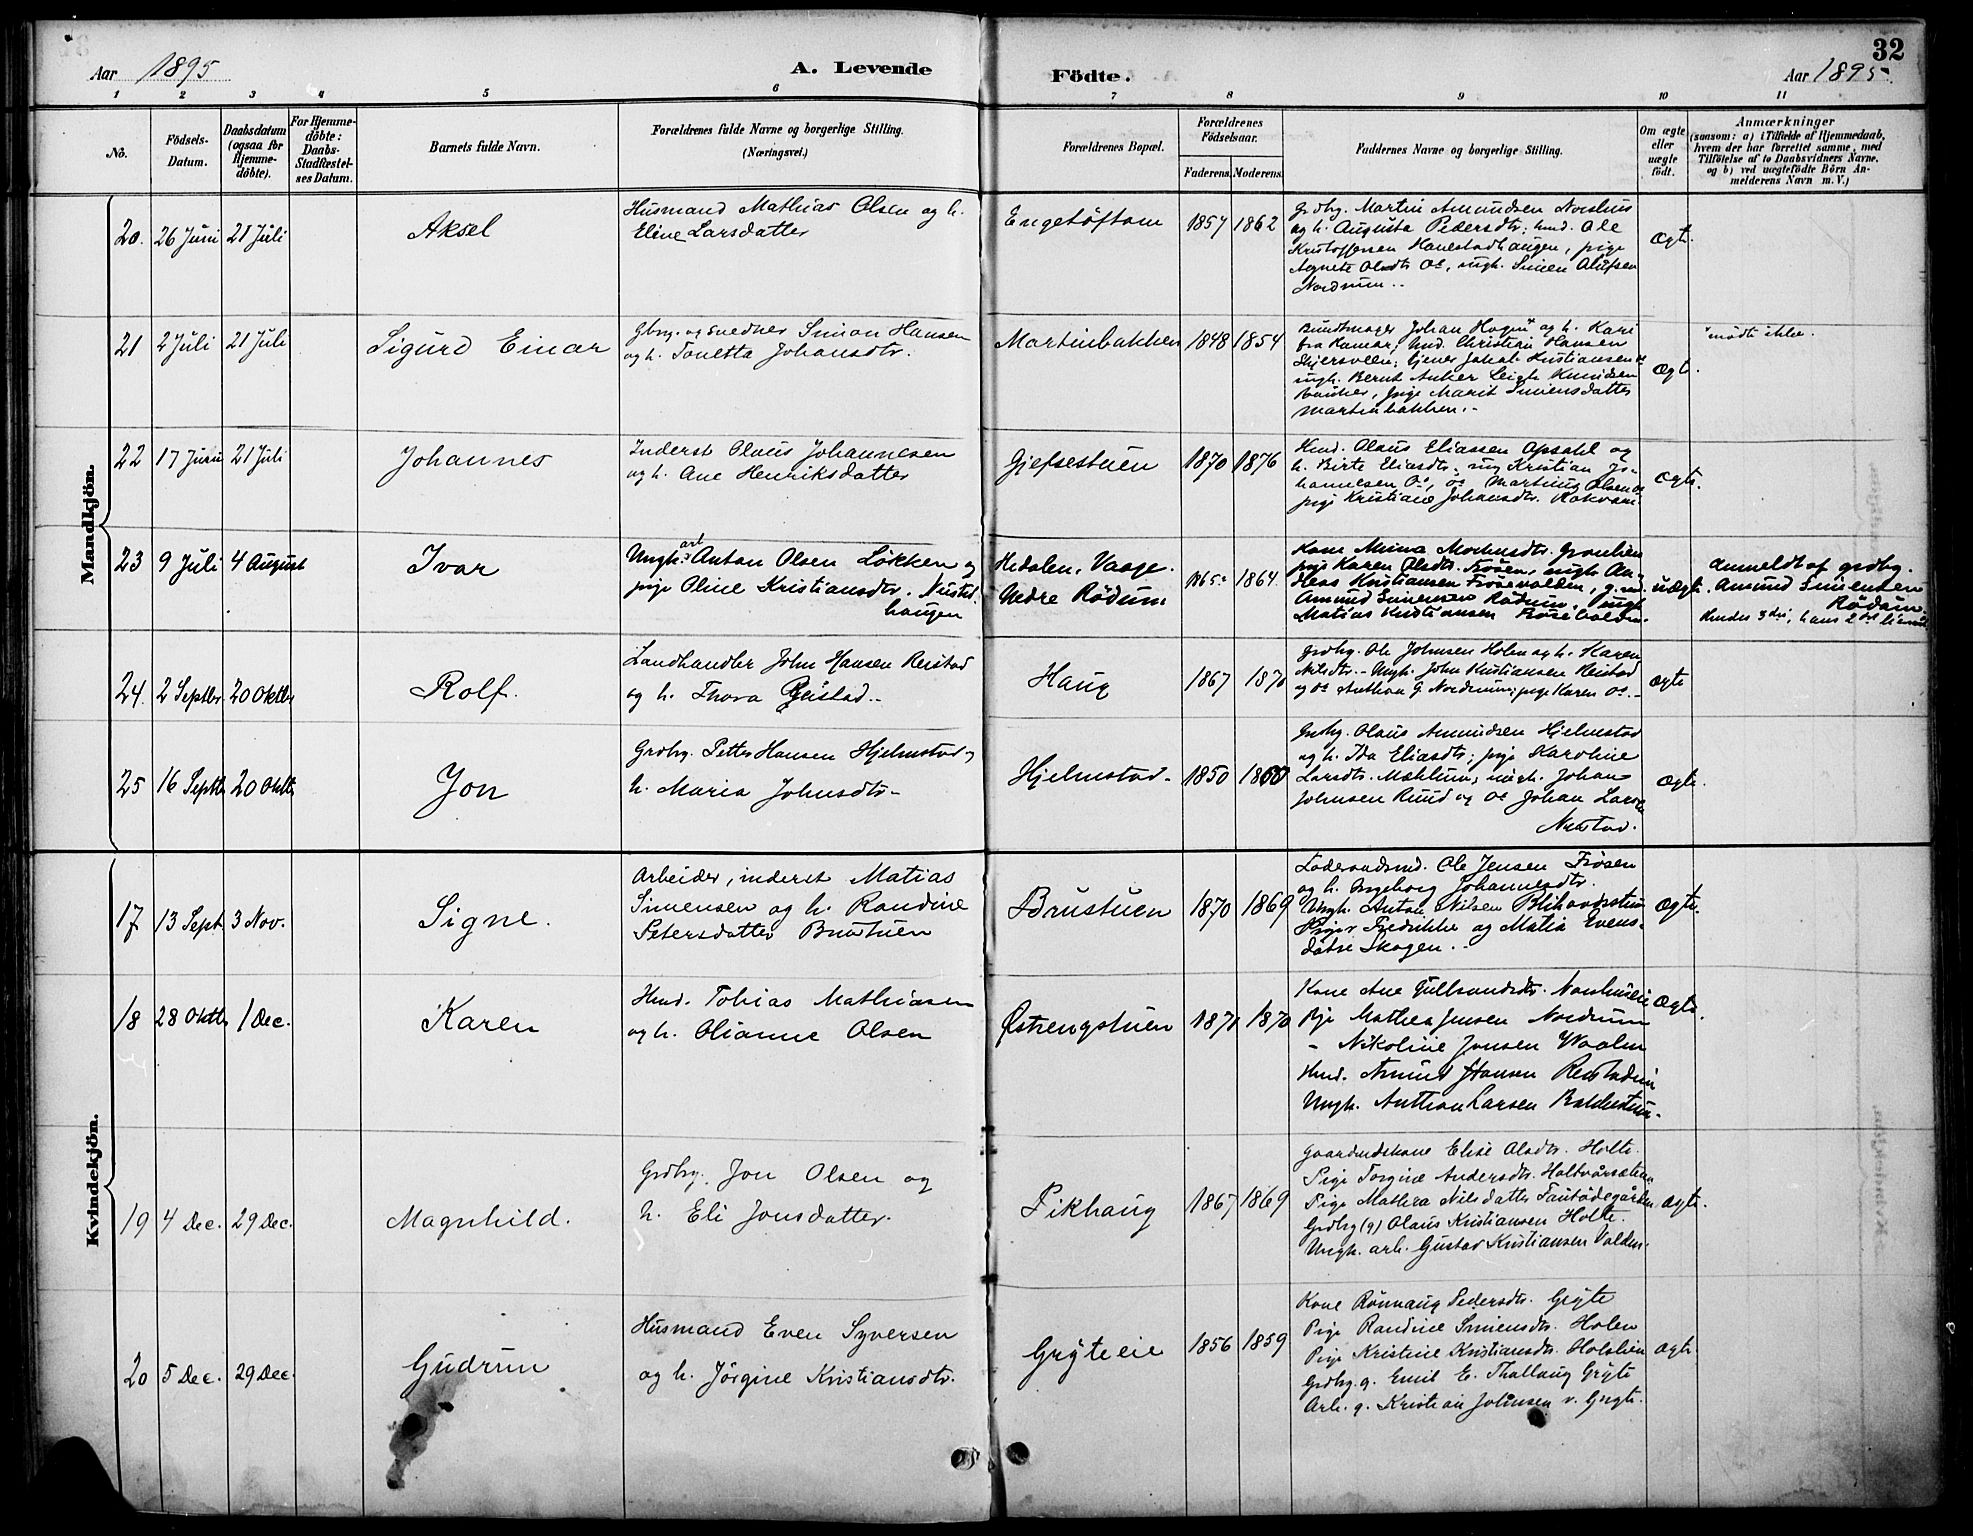 32
Aar 1895
A. Levende
Födte.
Aar 1895.
1 2 3 4 5 6 7 8 9 10 11
No.
Födsels-
Datum.
Daabsdatum
(ogsaa för
Hjemme-
döbte).
For Hjemme-
döbte:
Daabs-
Stadfæstel-
ses Datum.
Barnets fulde Navn.
Forældrenes fulde Navne og borgerlige Stilling.
(Næringsvei.)
Forældrenes Bopæl.
Forældrenes
Födselsaar.
Faderens. Moderens.
Faddernes Navne og borgerlige Stilling.
Om ægte
eller
uægte
födt.
Anmærkninger
(saasom: a) i Tilfælde af Hjemmedaab,
hvem der har forrettet samme, med
Tilföielse af to Daabsvidners Navne,
og b) ved uægtefödte Börn An-
melderens Navn m. V.)
Mandkjön.
20. 26 Juni 21 Juli
Aksel
Husmand Mathias Olsen og h.
Eline Larsdatter
Engetöftom
1857 1862
Grdbg. Martin Amundsen
og h. Augusta Pedersdtr; hmd. Ole
Kristoffersen Hanestadhaugen, pige
Agnete Olsdtr Os, ungk. Simen Olufsen
Nordrum..
Ægte.
21 2 Juli 21 Juli
Sigurd Einar
Gbrg. og snedker Simon Hansen
og h. Tonetta Johansdtr.
Martinbakken
1848 1854
Bundtmager Johan Hagen" og h. Kari
fra Hamar; hmd. Christian Hansen
tjener Jahal Kristiansen
ungk. Bernt Anker Knudsen
pige Marit Simensdatter
Martinbakken.-
Ægte.
"mödte ikke.
22 17 Juni 21 Juli
Johannes
Inderst Olaus Johannesen
og h. Ane Henriksdatter
Gjefsestuen
1870 1876
Hmd. Olaus Eliassen Opsahl og
h. Birte Eliasdtr; ung Kristian Jo-
hannesen Os, os Martinus Olsen os
pige Kristiane Johansdtr.
Ægte.
23 9 Juli 4 August
Ivar
Ungk. arb Anton Olsen Løkken og
pige Oline Kristiansdtr. Nustad
haugen
Hedalen, Vaage.
Nedre Rødum
1865- 1864.
Kone Mina
pige Karen Olsdtr. Frøsen, ungk. An-
dreas Kristiansen Frøsevolden, g.m.
Amund Simensen Rødum, ungk
Matias Kristiansen Frøsevolden.
uægte.
Anmeldt af grdbg.
Amund Simensen
Rødum.
Hendes 3die, hans 2det
24. 2 Septbr. 20 Oktbr
Rolf.
Landhandler John Hansen Reistad
og h. Thora Reistad..
Haug
1867 1870
Grdbg. Ole Johnsen Holm og h. Karen
Nilsdtr.- Ungk. John Kristiansen Reistad
og os Anthon G. Nordrum; pige Karen os.-
ægte
25 16 Septbr 20 Oktbr
Jon
Grdbg. Petter Hansen Hjelmstad og
h. Maria Johnsdtr-
Hjelmstad.
1850
Grdbg. Olaus Amundsen Hjelmstad
og h. Ida Eliasdtr; pige Karoline
Larsdtr. Mæhlum; ungk. Johan
Johnsen Ruud og os Johan Larsen
Nustad.
Ægte.
Kvindekjön.
17 13 Sept. 3 Nov.
Signe.
Arbeider, inderst Matias
Simensen og h. Randine
Petersdatter Brustuen
Brustuen
1870 1869
Föderaadsmd. Ole Jensen Frøsen
og h. Ingeborg Johannesdtr.
Ungk. Anton Nilsen
Piger Fredrikke og Matia Evens-
døtre Skogen..
Ægte.
18 28 Oktbr 1 Dec.
Karen
Hmd. Tobias Mathiasen
og h. Olianne Olsen
Østrengstuen
1871 1870
Kone Ane Gulbrandsdtr.
Pige Mathea Jensen Nordrum
- Nikoline Jonsen
Hmd. Hansen
Ungk. Anthon Larsen
Ægte.
19 4 Dec. 29 Dec.
Magnhild.
Grdbg. Jon Olsen og
h. Eli Jonsdatter.
Pikhaug
1867 1869
Gaardmdskone Elise Olsdtr. Holte.
Pige Torgine Andersdtr.
Pige Mathea Nilsdatter
Grdbg (g) Olaus Kristiansen Holte.
Ungk. arb. Gustav Kristiansen Volden.
Ægte.
20 5 Dec. 29 Dec.
Gudrun
Husmand Even Syversen
og h. Jörgine Kristiansdtr.
Grÿteeie
1856 1859
Kone Rönnaug Pedersdtr. Grÿte
Pige Randine Simensdtr. Holen
Pige Kristine Kristiansdtr. Holslien
Grdbg. g. Emil E. Thallaug Grÿte
Arb. g. Kristian Johnsen v. Grÿte.
Ægte.